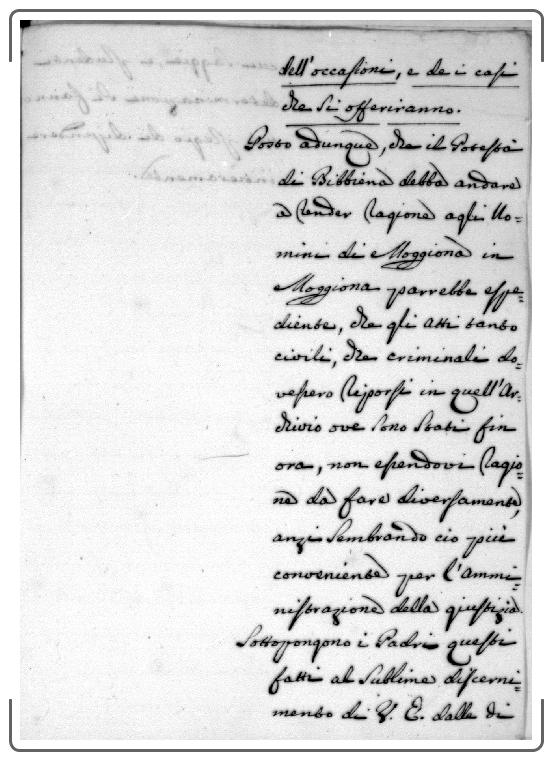 dell'occasioni, e de i casi
che si offeriranno.
Posto adunque, che il Potestà
di Bibbiena debba andare
a render ragione agli Uo=
mini di Moggiona in
Moggiona parrebbe espe=
diente, che gli atti tanto
civili, che criminali do=
vessero riporsi in quell'Ar=
chivio ove sono stati fin
ora, non essendovi ragio=
ne da fare diversamente,
anzi sembrando cio più
conveniente per l'Ammi=
nistrazione della giustizia.
Sottopongono i Padri questi
fatti al sublime discerni=
mento di V. E. dalle di